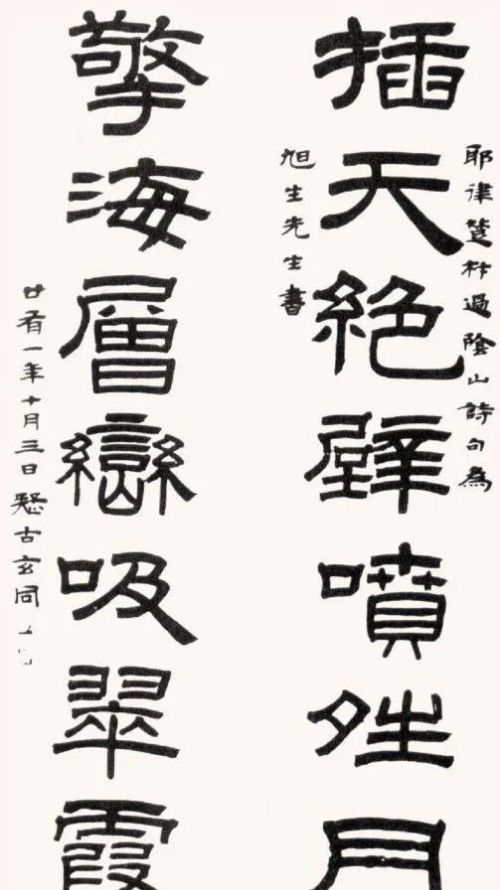 耶律楚材過陰山詩句為
插天絕壁噴夝月
旭生先生書
擎海層巒吸翠霞
廿有一年十月三日疑古玄同